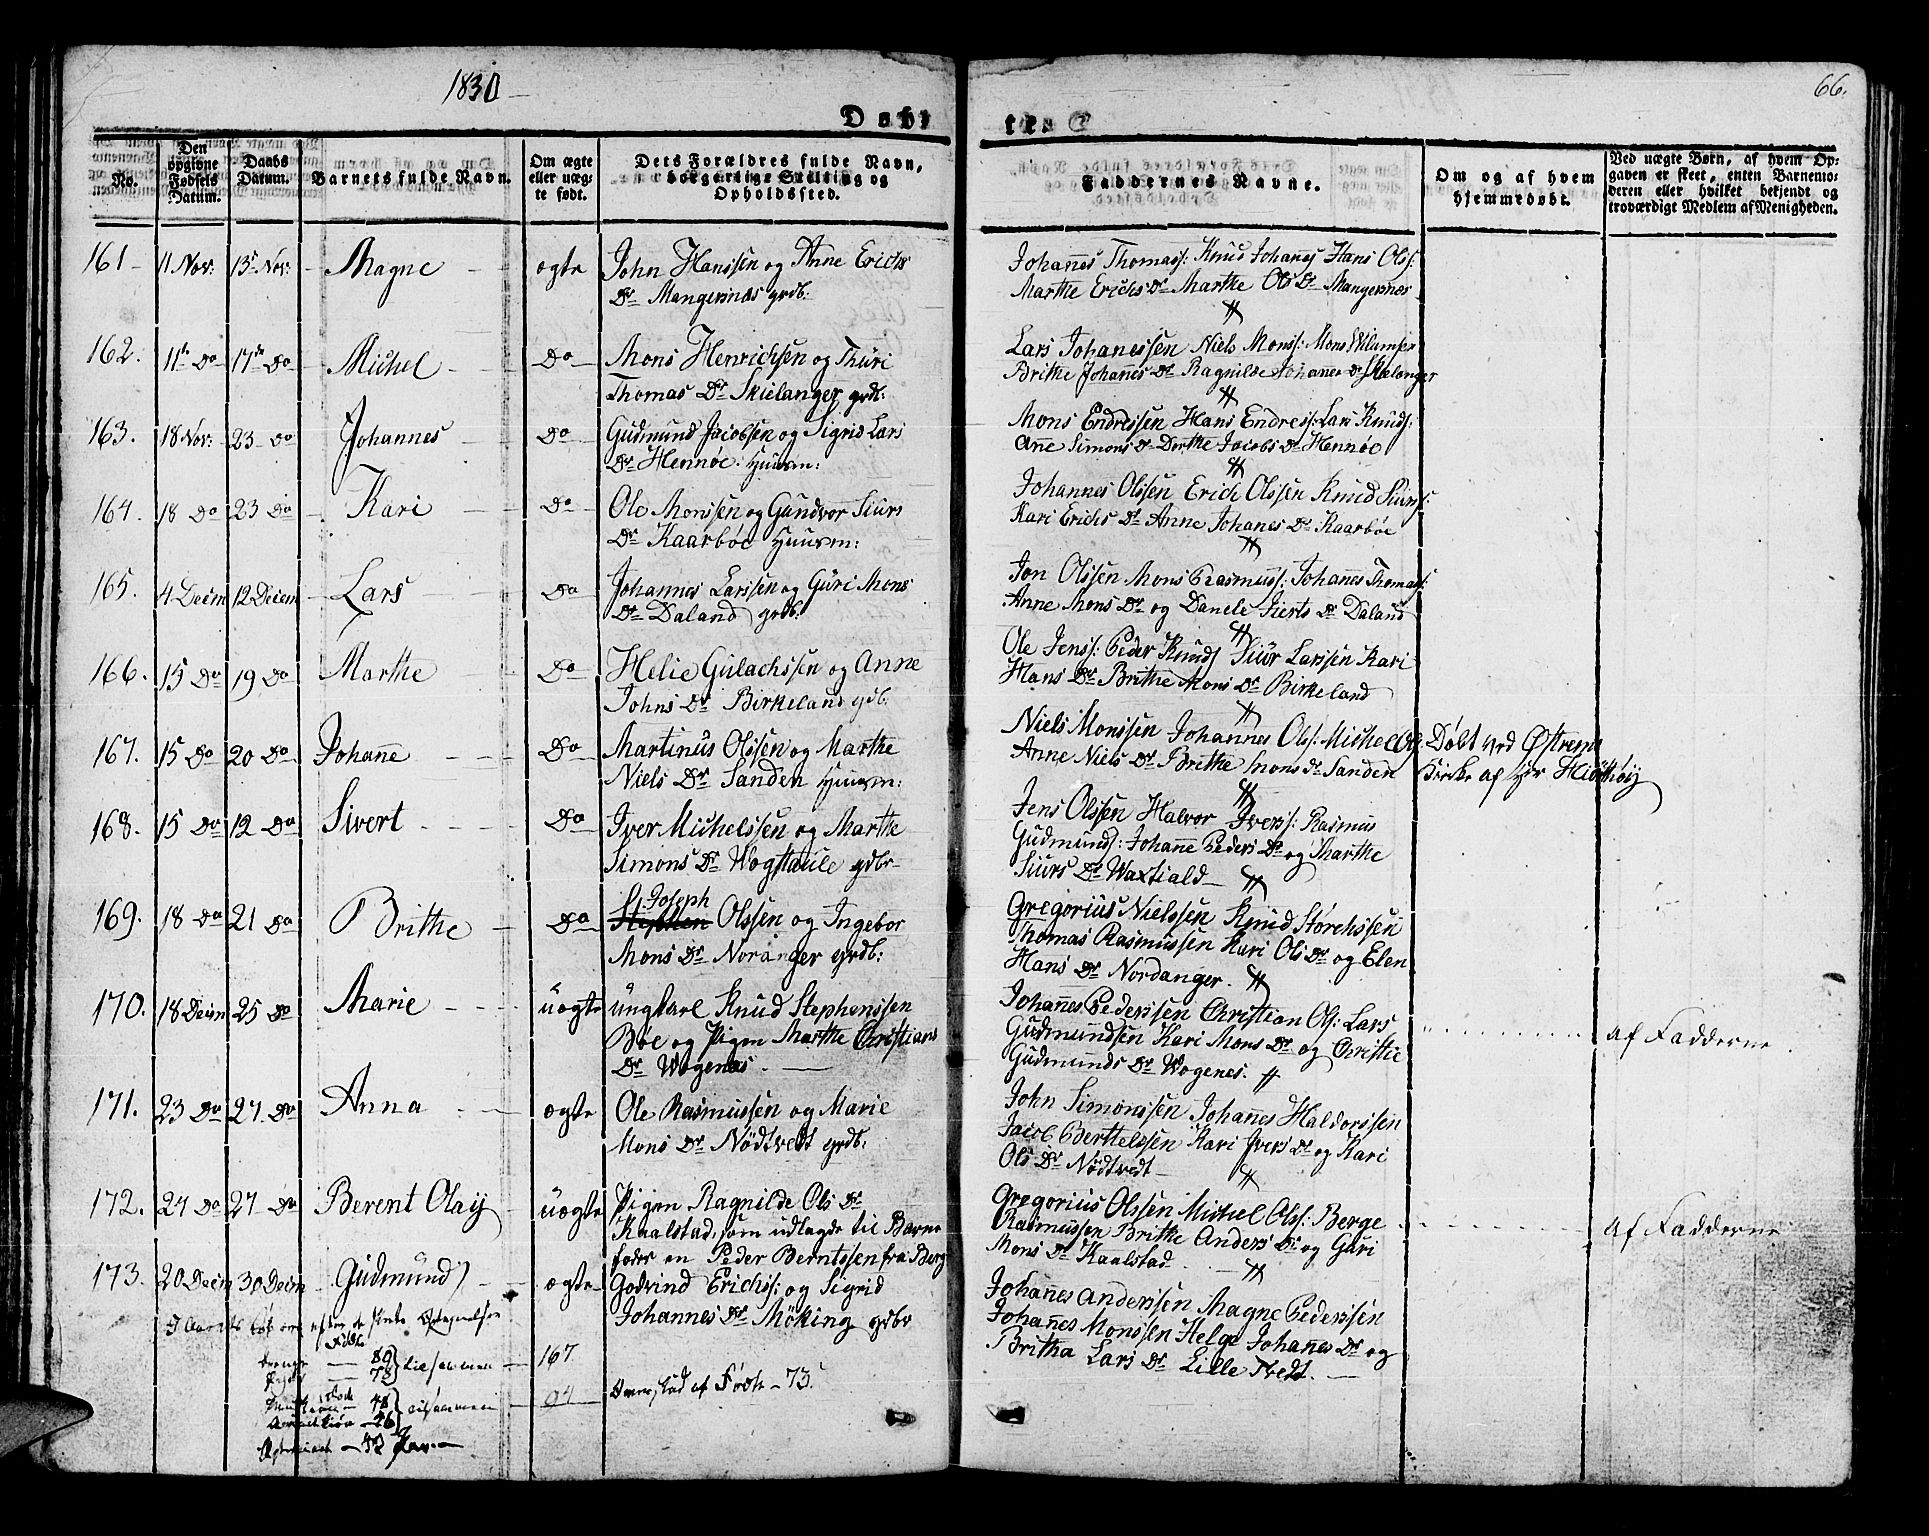 1830
66.
Døbte
No.
Den opgivne Fødsels Datum.
Daabs Datum.
Barnets fulde Navn.
Om ægte eller uægte født.
Dets Forældres fulde Navn, borgerlige Stilling og Opholdssted.
Faddernes Navne.
Om og af hvem hjemmedøbt.
Ved uægte Børn, af hvem Opgaven er skeet, enten Barnemoderen eller hvilket bekjendt og troværdigt Medlem af Menigheden.
161 11 Nov: 15 Nov: Magne ægte John Hanssen og Anne Erichs
Dr Mangersnæs grdb:
Johannes Thomass: Knud Johannes Hans Ols:
Marthe Erichs Dr Marthe Ols Dr Mangersnæs
162. 11te Do 17de Do Michel Do Mons Henrichsen og Thuri
Thomas Dr Skielanger grdb:
Lars Johanessen Niels Mons: Mons Wilumsen
Brithe Johanes Dr Ragnilde Johanes Dr Skielanger
163. 18 Nov: 23 Do Johannes Do Gudmund Jacobsen og Sigrid Lars
Dr Hennöe. Huusm:
Mons Endressen Hans Endres: Lars Knuds:
Anne Simons Dr Dorthe Jacobs Dr Hennöe
164. 18 Do 23 Do Kari Do Ole Monssen og Gundvor Siurs
Dr Kaarböe Huusm:
Johannes Olssen Erich Olssen Knud Siurs:
Kari Erichs Dr Anne Johanes Dr Kaarböe
165. 4 Decem 12 Decem Lars Do Johannes Larssen og Guri Mons
Dr Daland grdb:
Jon Olssen Mons Rasmuss: Johanes Thomas:
Anne Mons Dr og Danele Sierts Dr Daland
166. 15 Do 19 Do Marthe Do Helie Gulachssen og Anne
Johns Dr Birkeland gdb:
Ole Jenss: Peder Knuds Siur Larssen Kari
Hans Dr Brithe Mons Dr Birkeland
167. 15 Do 20 Do Johanne Do Martinus Olssen og Marthe
Niels Dr Sanden Huusm:
Niels Monssen Johannes Ols: Michel Ols:
Anne Niels Dr Brithe Mons Dr Sanden
Döbt ved Østrems
Kirke af Hr
168. 15 Do 12 Do Sivert Do Iver Michelssen og Marthe
Simons Dr Wogstaule gdbr
Jens Olssen Halvor Ivers: Rasmus
Gudmunds: Johanne Peders Dr og Marthe
Siurs Dr Waxtiald
169. 18 Do 21 Do Brithe Do Joseph
Stephen Olssen og Ingebor
Mons Dr Noranger grdb:
Gregorius Nielssen Knud Störchssen
Thomas Rasmussen Kari Ols Dr og Elen
Hans Dr Nordanger.
170. 18 Decem 25 Do Marie uægte ungkarl Knud Stephenssen
Böe og Pigen Marthe Christians
Dr Wogenæs.
Johanes Pederssen Christian Ols: Lars
Gudmundsen Kari Mons Dr og Christie
Gudmunds Dr Wogenes.
af Fadderne
171. 23 Do 27 Do Anna ægte Ole Rasmussen og Marie
Mons Dr Nödtvedt grdb:
John Simonssen Johanes Haldorssen
Jacob Berthelssen Kari Ivers Dr og Kari
Ols Dr Nödtvedt
172. 24 Do 27 Do Berent Olay uægte Pigen Ragnilde Ols Dr
Kaalstad, som udlagde til Barne
fader en Peder Berntssen fra Berg
Gregorius Olssen Michel Olss: Berge
Rasmussen Brithe Anders Dr og Guri
Mons Dr Kaalstad
af Fadderne
173. 20 Decem 30 Decem Gudmund ægte Godvind Erichss: og Sigrid
Johannes Dr Möking gdbr
Johanes Anderssen Magne Pederssen
Johanes Monssen Helge Johanes Dr og
Britha Lars Dr Lille Tvedt.
Fødte
Drenge 89
Piger 78 tilsammen 167
48
46 tilsammen 94
Overskud af Fødte 73.